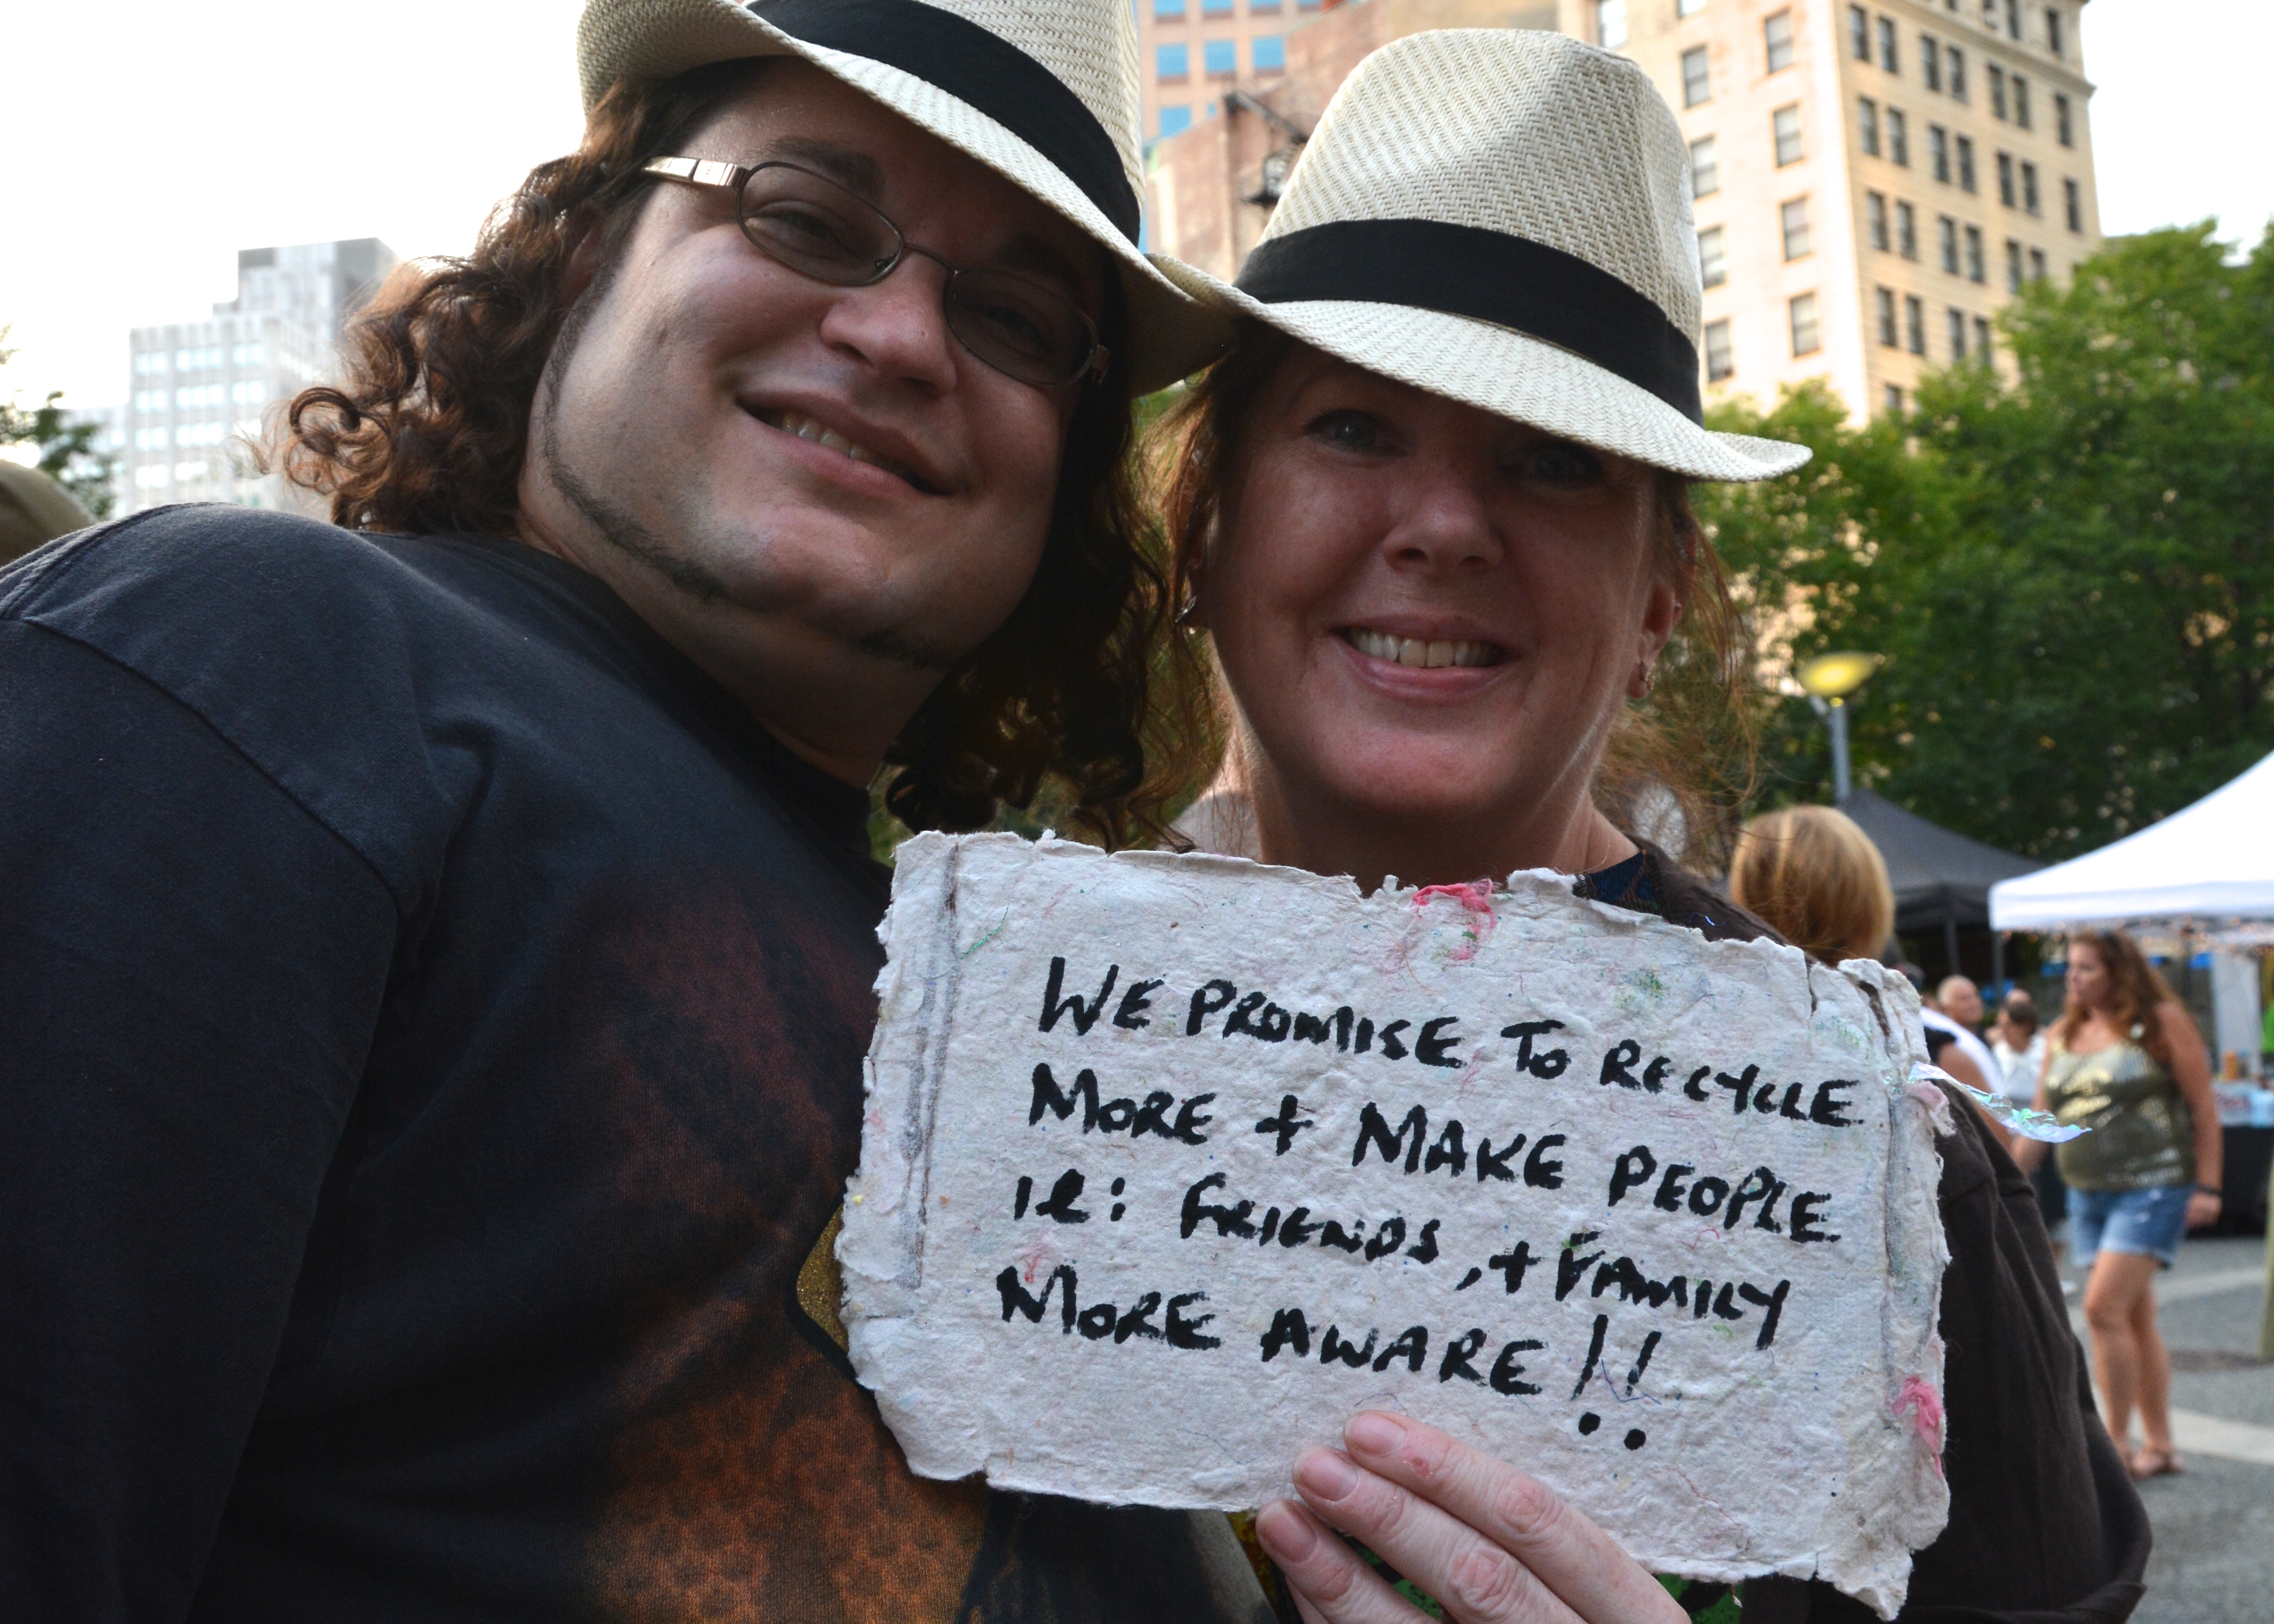 WE PROMISE TO RECYCLE
MORE + MAKE PEOPLE
ie: FRIENDS, + FAMILY
MORE AWARE!!